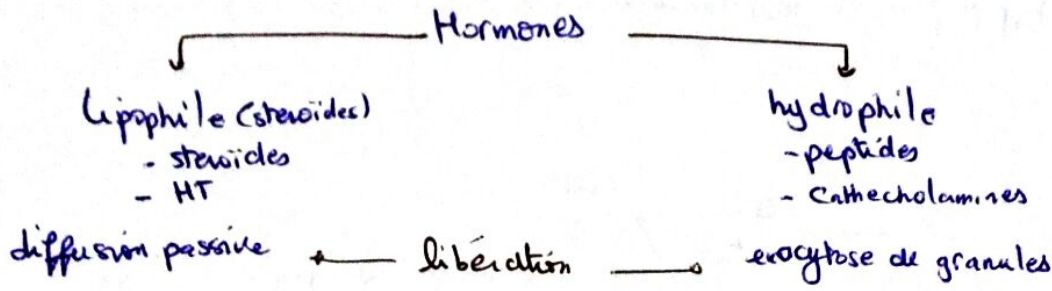 Hormones
lipophile (steroïdes)
- steroïdes
- HT
hydrophile
- peptides
- Cathecholamines
diffusion passive ← libération → exocytose de granules